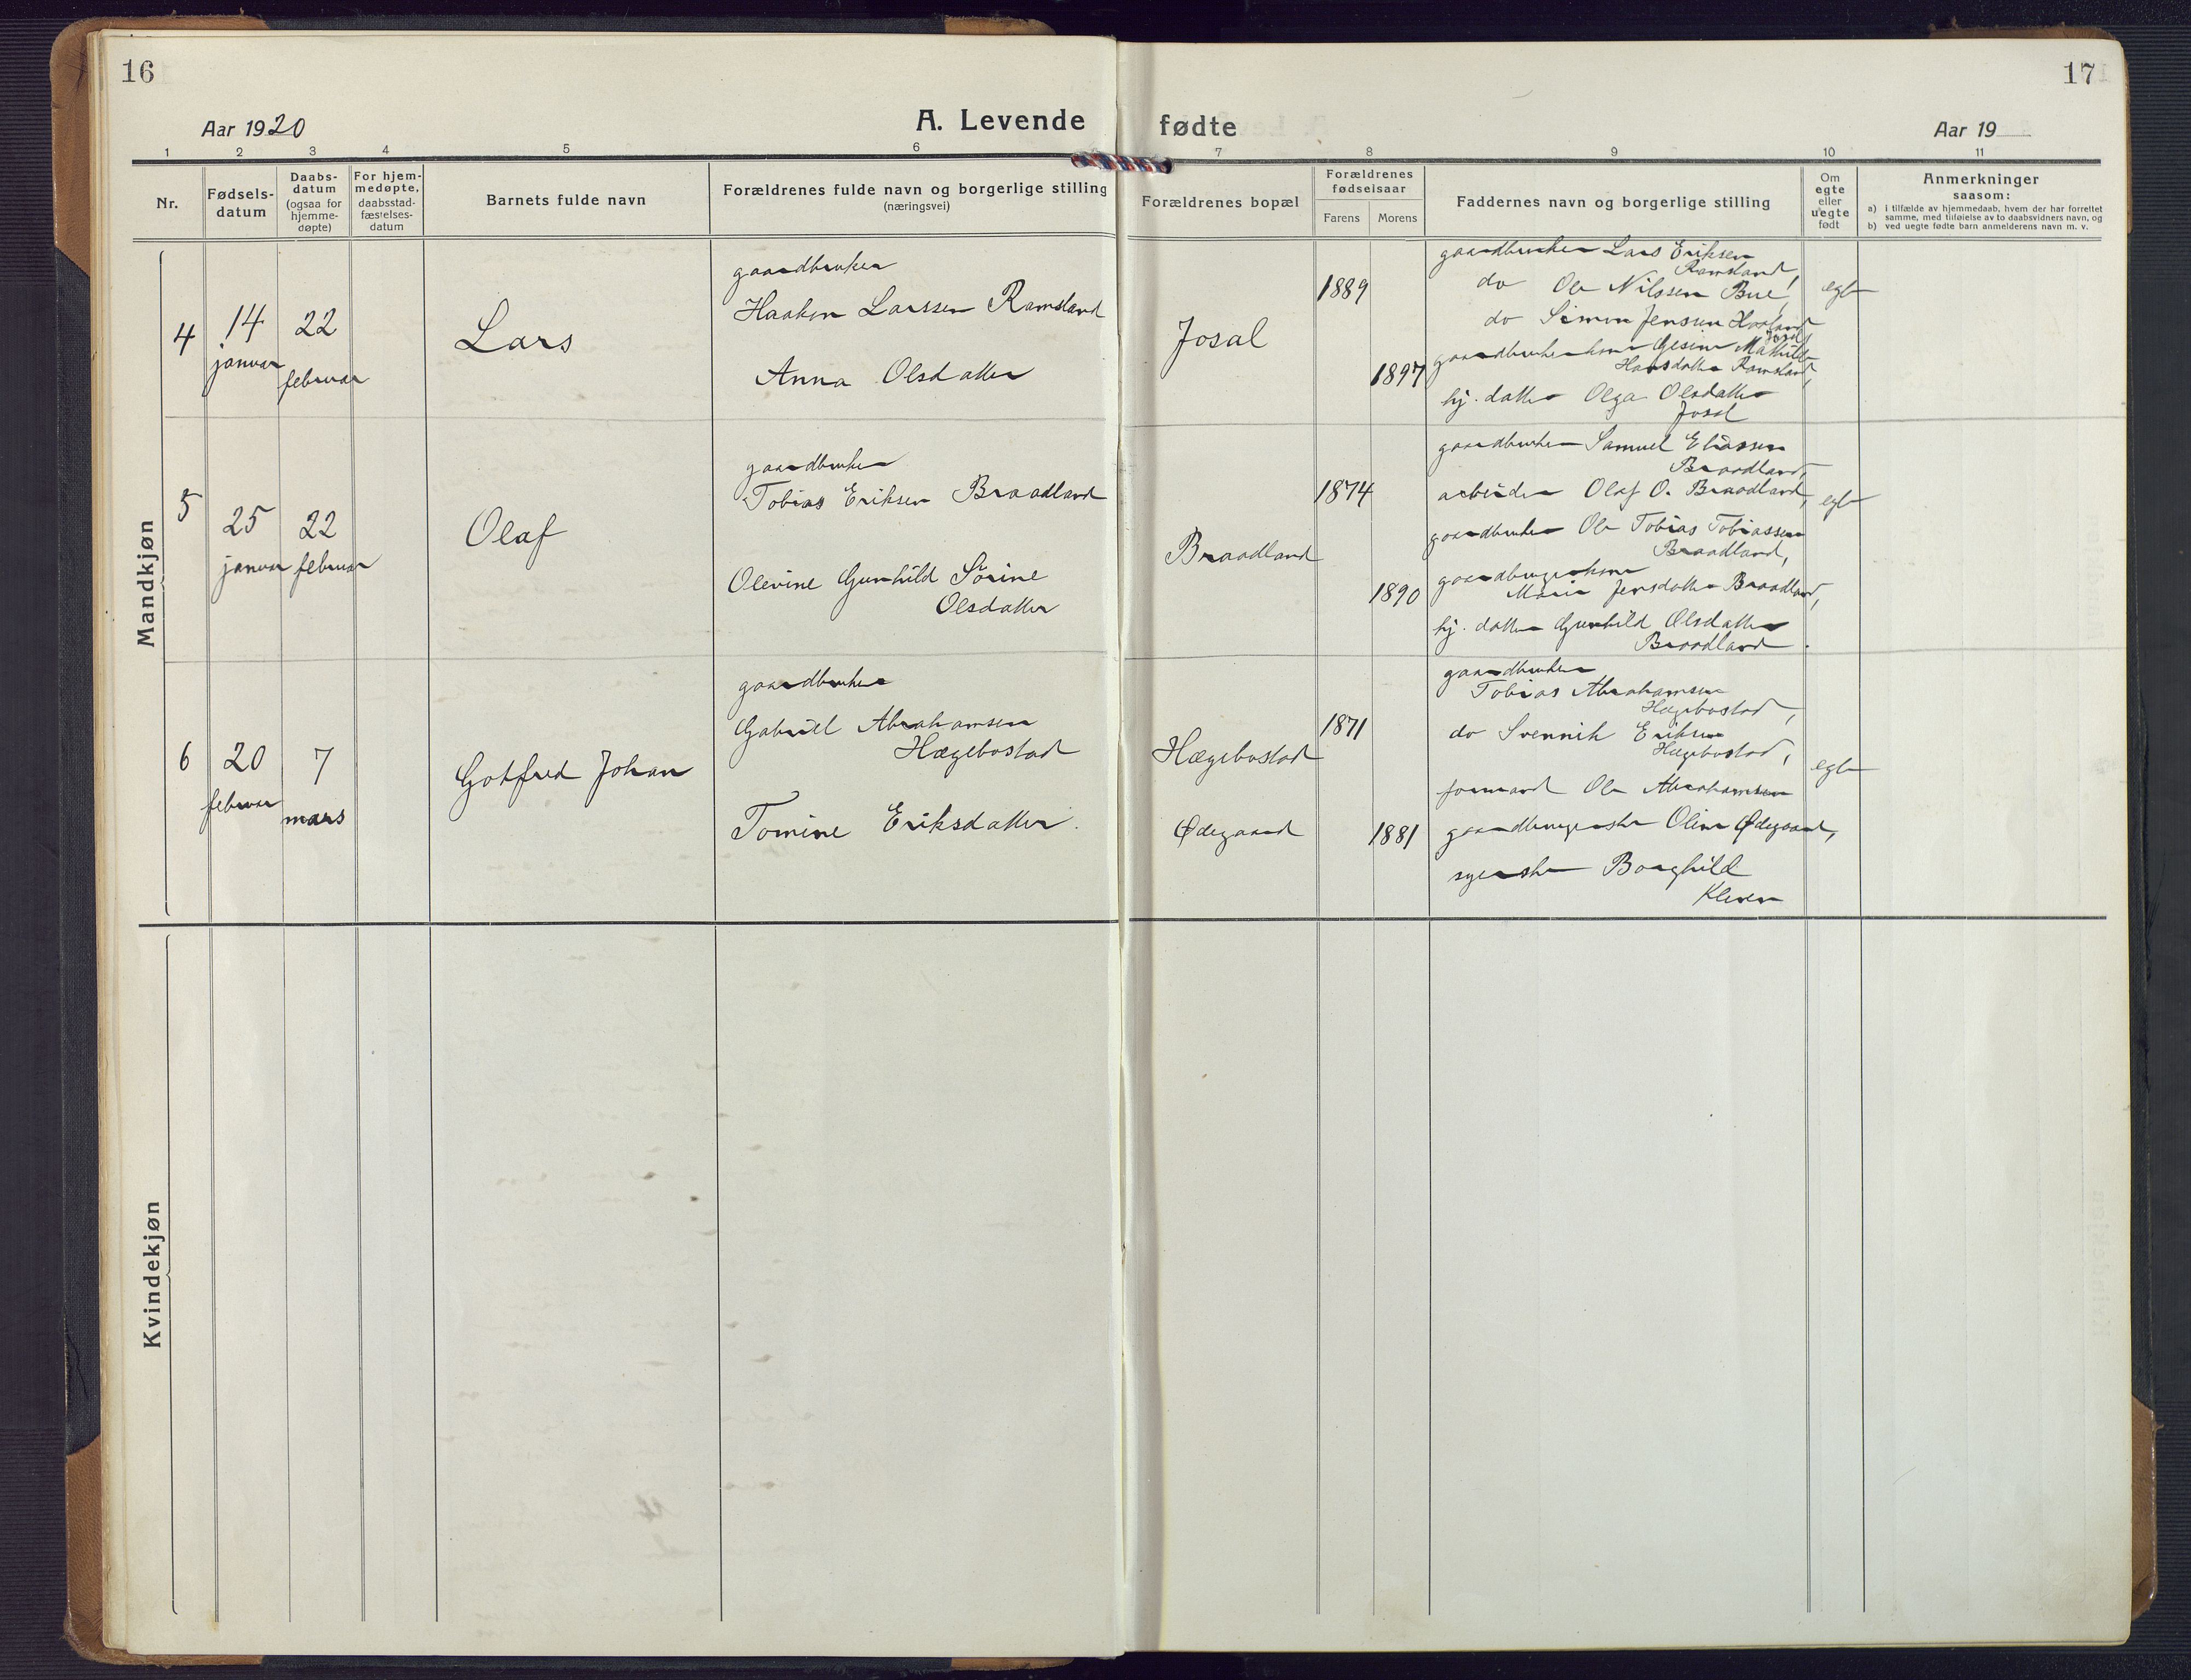 16
17
Aar 1920
A. Levende fødte
Aar 19
1 2 3 4 5 6 7 8 9 10 11
Nr.
Fødsels-
datum
Daabs-
datum
(ogsaa for
hjemme-
døpte)
For hjem-
medøpte,
daabsstad-
fæstelses-
datum
Barnets fulde navn
Forældrenes fulde navn og borgerlige stilling
(næringsvei)
Forældrenes bopæl
Forældrenes
fødselsaar
Farens Morens
Faddernes navn og borgerlige stilling
Om
egte
eller
uegte
født
Anmerkninger
saasom:
a) i tilfælde av hjemmedaab, hvem der har forrettet
samme, med tilføielse av to daabsvidners navn, og
b) ved uegte fødte barn anmelderens navn m. v.
Mandkjøn
4
14
januar
22
februar
Lars
gaardbruker
Haakon Larssen Ramsland
Anna Olsdatter
Josal
1889
1897
gaardbruker Lars Eriksen
Ramsland,
do Ole Nilssen Bue,
do Simon Jensen Haaland
Josal,
gaardbrukerkone Gesine Mathilde
Hansdatter Ramsland,
hj. datter Olga Olsdatter
Josal
egte
5
25
januar
22
februar
Olaf
gaardbruker
Tobias Eriksen Braadland
Olevine Gunhild Sørine
Olsdatter
Braadland
1874
1890
gaardbruker Samuel Eliassen
Braadland,
arbeider Olaf O. Braadland,
gaardbruker Ole Tobias Tobiassen
Braadland,
gaardbrugerkone
Marie Jensdatter Braadland,
hj. datter Gunhild Olsdatter
Braadland.
egte
6
20
februar
7
mars
Gotfred Johan
gaardbruker
Gabriel Abrahamsen
Hægebostad
Tomine Eriksdatter.
Hægebostad
Ødegaard
1871
1881
gaardbruker
Tobias Abrahamsen
Hægebostad,
do Svennik Eriksen
Hægebostad,
formand Ole Abrahamsen
Oline Ødegaard,
syerske Borghild
Kleven
egte
Kvindekjøn